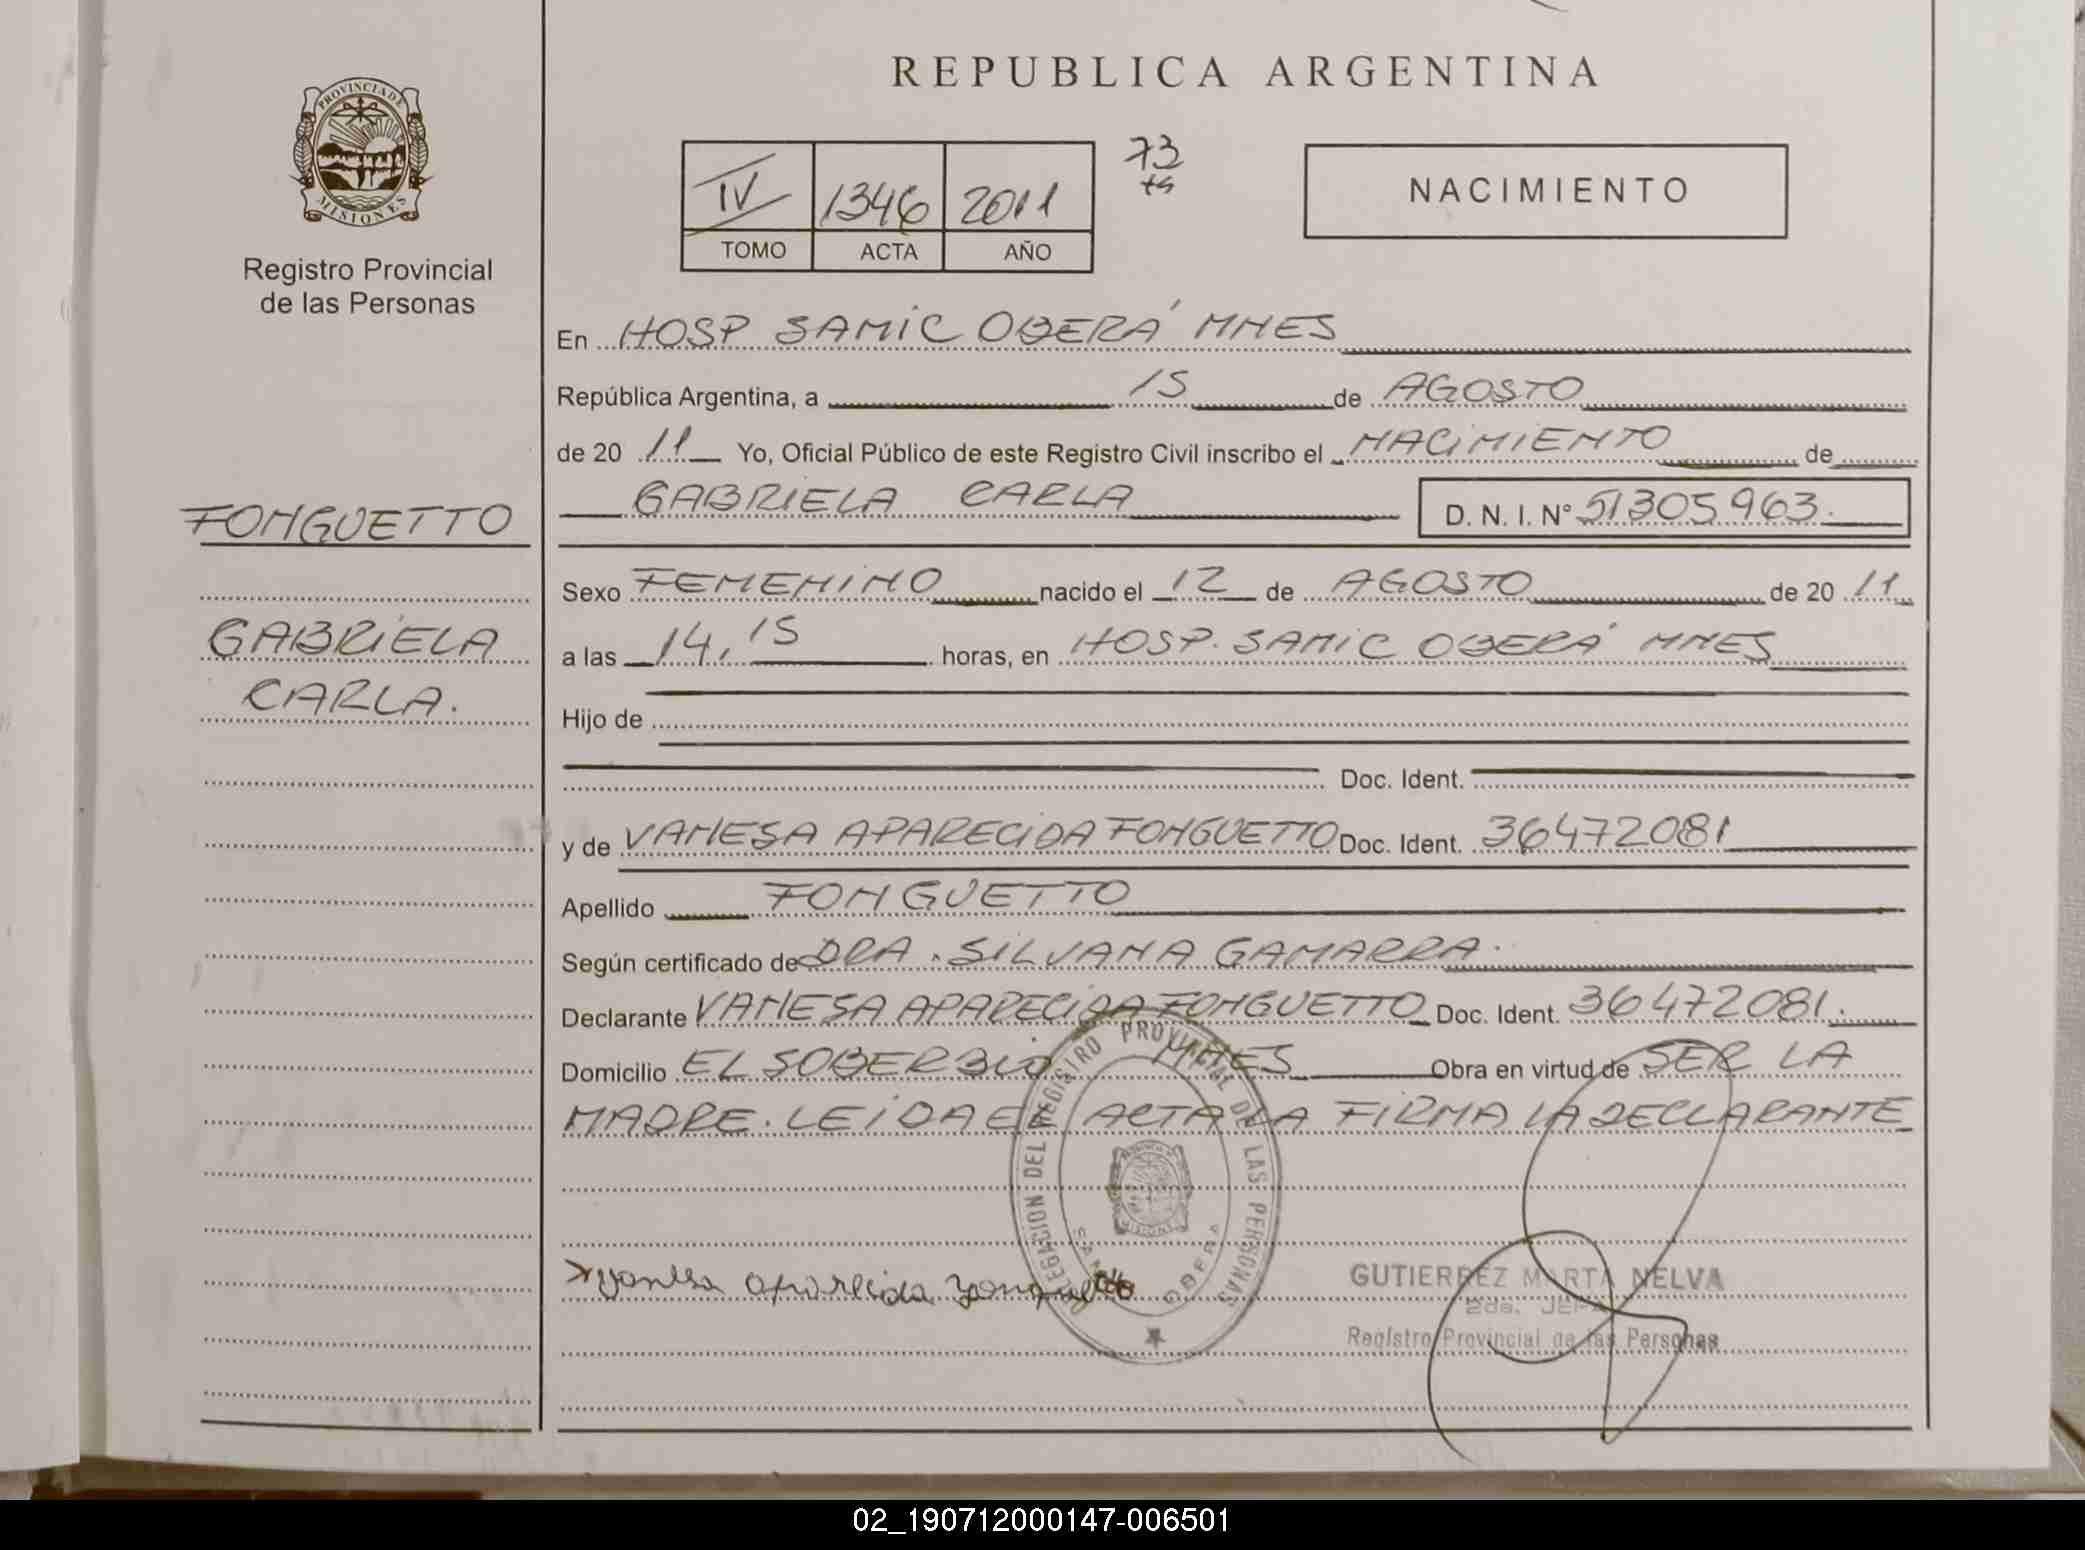 PROVINCIA DE
MISIONES
Registro Provincial
de las Personas
FONGUETTO
GABRIELA
CARLA.
REPUBLICA ARGENTINA
IV 1346 2011
TOMO ACTA AÑO
73
NACIMIENTO
En HOSP SAMIC OBERÁ MNES
República Argentina, a 15 de AGOSTO
de 20 11 Yo, Oficial Público de este Registro Civil inscribo el NACIMIENTO de
GABRIELA CARLA D. N. I. N° 51305963.
Sexo FEMENINO nacido el 12 de AGOSTO de 20 11
a las 14,15 horas, en HOSP. SAMIC OBERÁ MNES
Hijo de
Doc. Ident.
y de VANESA APARECIDA FONGUETTO Doc. Ident. 36472081
Apellido FONGUETTO
Según certificado de DRA. SILVANA GAMARRA.
Declarante VANESA APARECIDA FONGUETTO Doc. Ident. 36472081.
Domicilio EL SOBERBIO MNES Obra en virtud de SER LA
MADRE. LEIDA EL ACTA LA FIRMA LA DECLARANTE
DELEGACION DEL REGISTRO PROVINCIAL DE LAS PERSONAS
OBERA
MISIONES
Vanesa aparecida Fonguetto
GUTIERREZ MARTA NELVA
2da. JEFA
Registro Provincial de las Personas
02_190712000147-006501